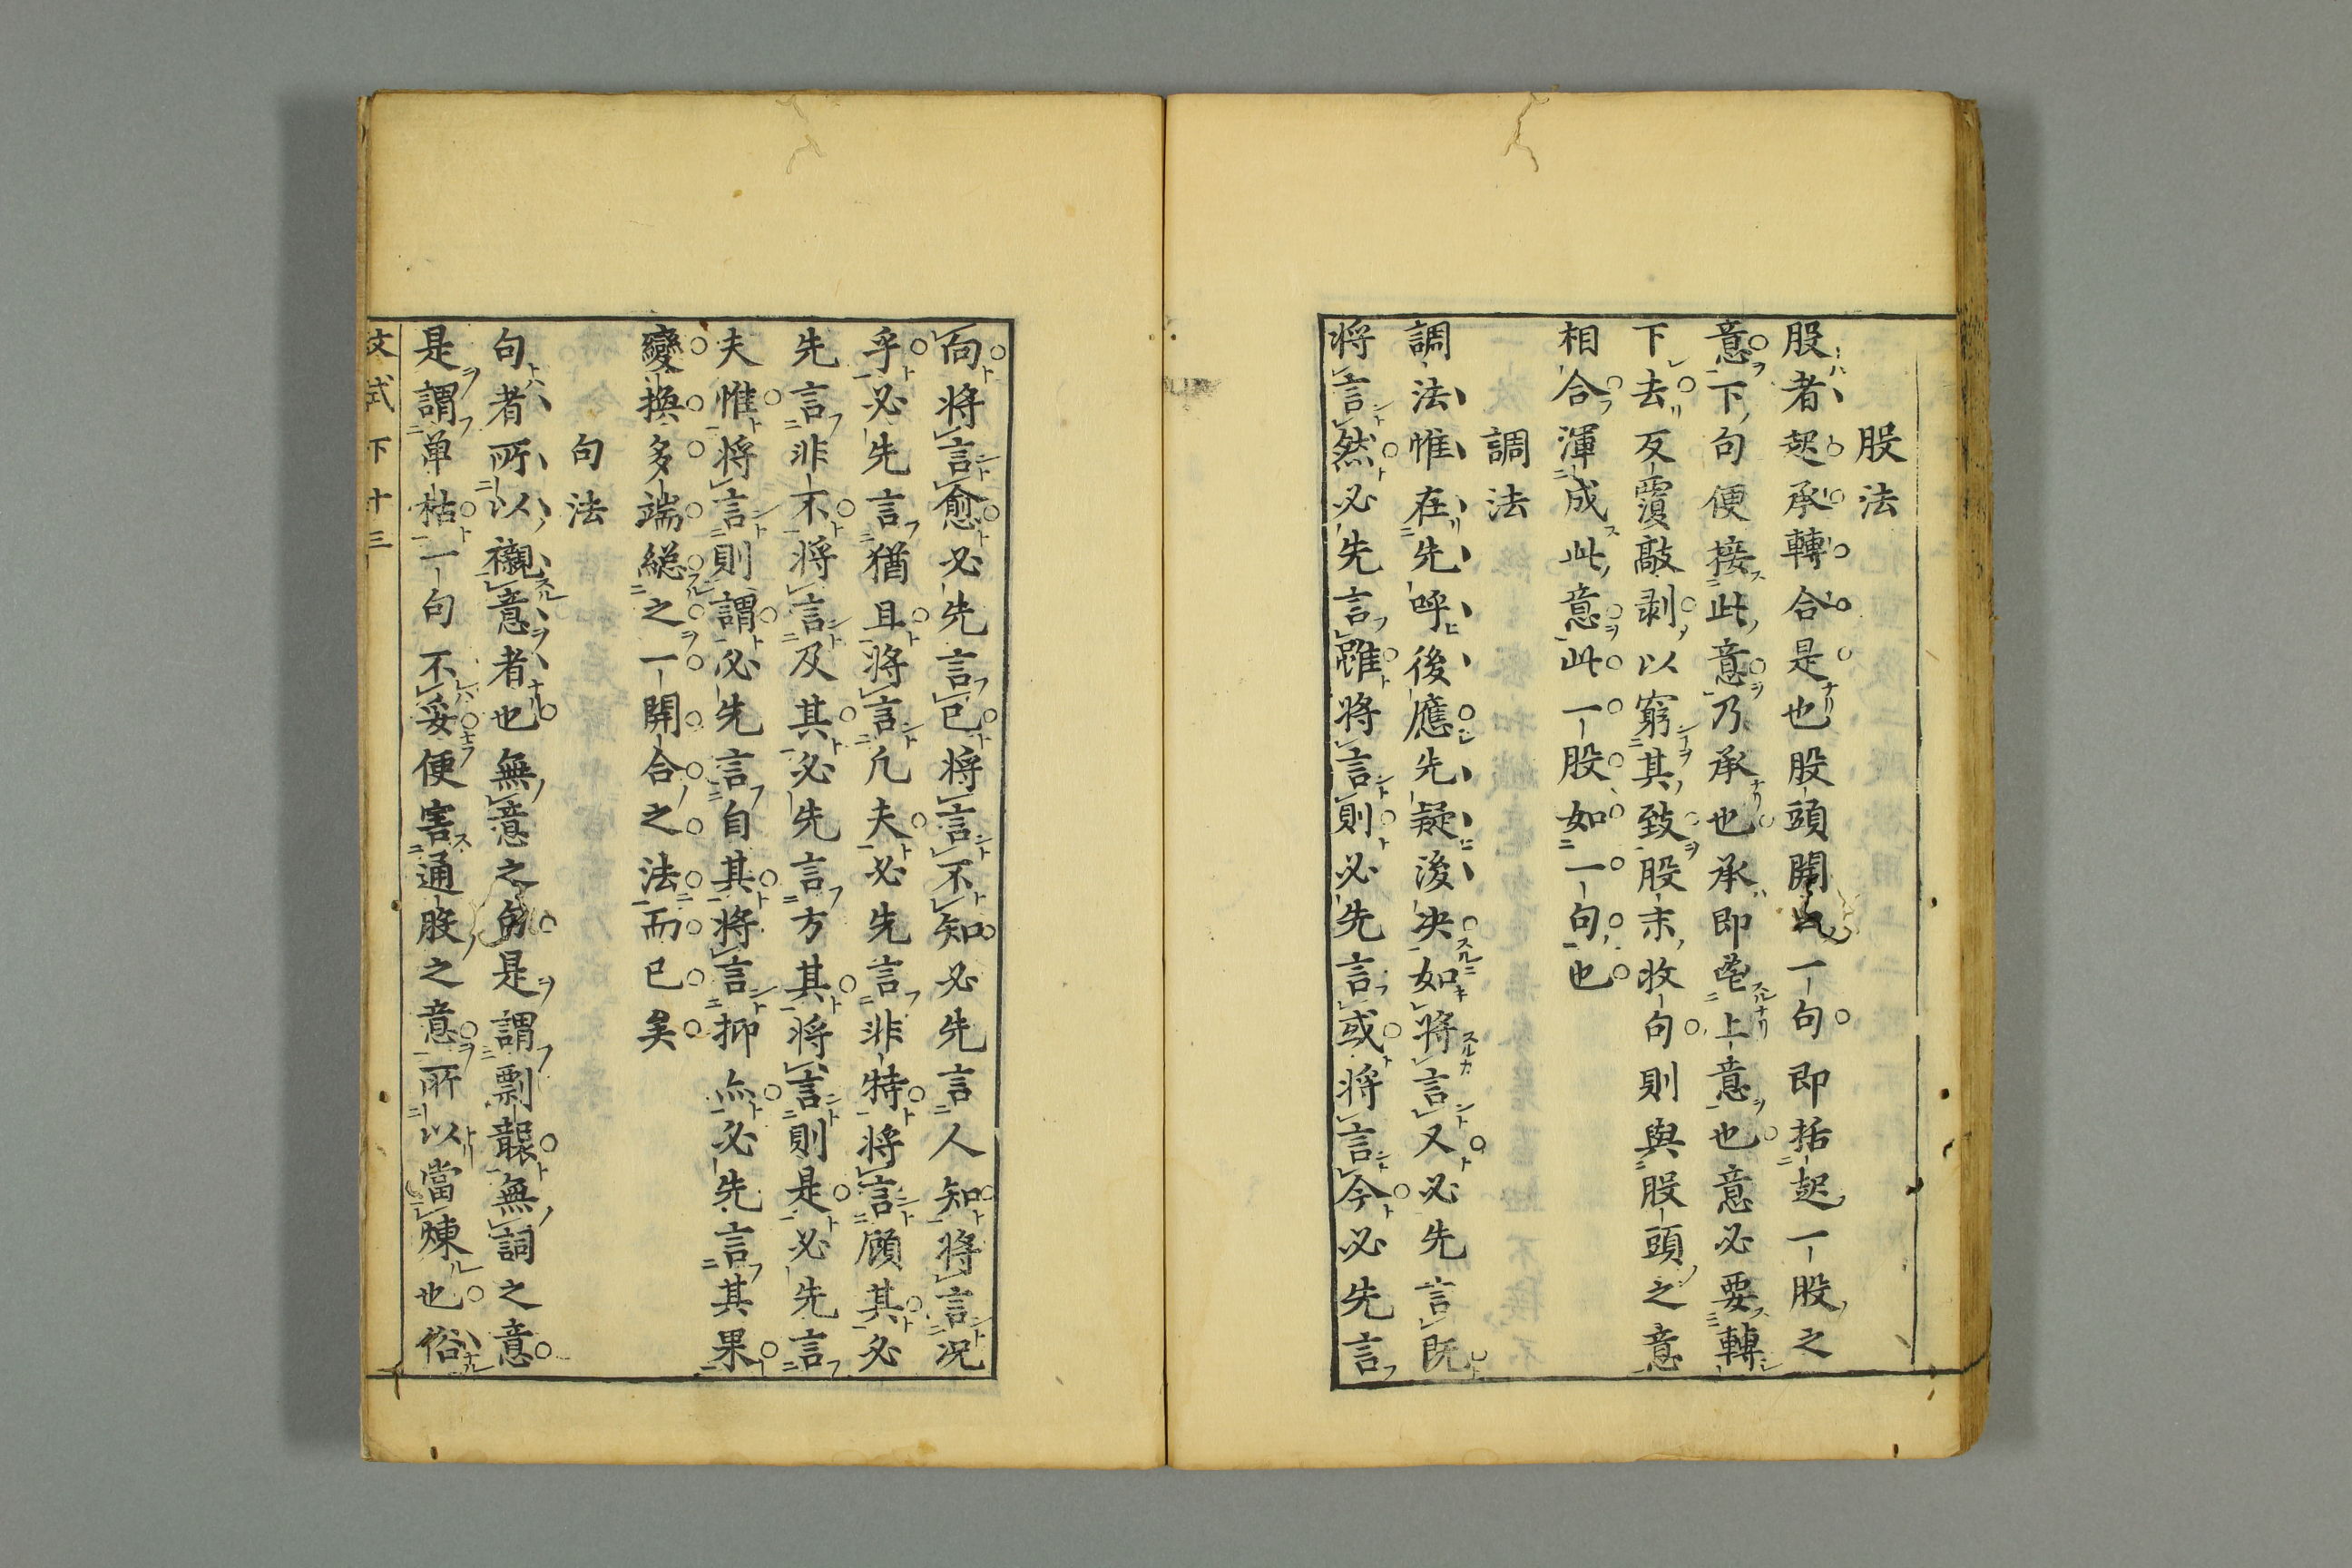 股法
股者起承轉合是也股頭開口一句即括起一股之
意下句便接此意乃承也承即含上意也意必要轉
下去反覆敲剥以窮其致股末收句則與股頭之意
相合渾成此意此一股如一句也
調法
調法惟在先呼後應先疑後决如將言又必先言既
将言然必先言雖将言則必先言或将言今必先言
向将言愈必先言已将言不知必先言人知将言况
乎必先言猶且将言凢夫必先言非特将言顧其必
先言非不将言及其必先言方其将言則是必先言
夫惟将言則謂必先言自其将言抑亦必先言其果
變換多端緫之一開合之法而已矣
句法
句者所以襯意者也無意之句是謂剽竊無詞之意
是謂单枯一句不妥便害通股之意所以當煉也俗
文式下十三